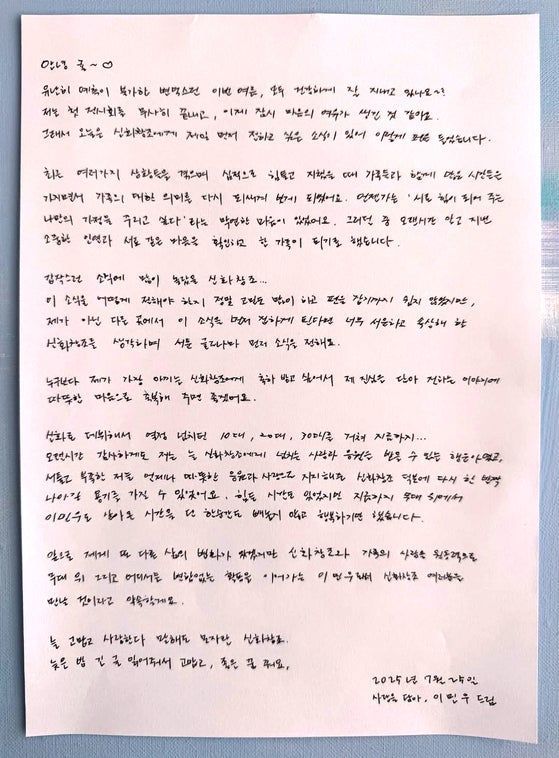 안녕 귤~♡
유난히 예측이 불가한 변덕스런 이번 여름, 모두 건강하게 잘 지내고 있나요~?
저는 첫 전시회를 무사히 끝내고, 이제 잠시 마음의 여유가 생긴 것 같아요.
그래서 오늘은 신화창조에게 제일 먼저 전하고 싶은 소식이 있어 이렇게 펜을 들었습니다.
최근 여러가지 상황들을 겪으며 심적으로 힘들고 지쳤을 때 가족들과 함께 많은 시간들을
가지면서 가족의 대한 의미를 다시 되새겨 보게 되었어요. 언젠가는 '서로 힘이 되어 주는
나만의 가정을 꾸리고 싶다'라는 막연한 마음이 있었어요. 그러던 중 오랜시간 알고 지낸
소중한 인연과 서로 같은 마음을 확인하고 한 가족이 되기로 했습니다.
갑작스런 소식에 많이 놀랐을 신화창조...
이 소식을 어떻게 전해야 하지 정말 고민도 많이 하고 펜을 잡기까지 쉽지 않았지만,
제가 아닌 다른 곳에서 이 소식을 먼저 전하게 된다면 너무 서운하고 속상해 할
신화창조를 생각하며 서툰 글로나마 먼저 소식을 전해요.
누구보다 제가 가장 아끼는 신화창조에게 축하 받고 싶어서 제 진심을 담아 전하는 이야기에
따뜻한 마음으로 축복해 주면 좋겠어요.
신화로 데뷔해서 열정 넘치던 10대, 20대, 30대를 거쳐 지금까지...
오랜시간 감사하게도 저는 늘 신화창조에게 넘치는 사랑과 응원을 받을 수 있는 행운아였고,
서툴고 부족한 저를 언제나 따뜻한 응원과 사랑으로 지지해준 신화창조 덕분에 다시 한 번 딛고
나아갈 용기를 가질 수 있었어요. 힘든 시간도 있었지만 지금까지 무대 위에서
이민우로 살아온 시간을 단 한순간도 빼놓지 않고 행복하기만 했습니다.
앞으로 제게 또 다른 삶의 변화가 왔겠지만 신화창조와 가족의 사랑을 원동력으로
무대 위 그리고 어디서든 변함없는 활동을 이어가는 이민우로써 신화창조 여러분을
만날 것이라고 약속할게요.
늘 고맙고 사랑한다 말해도 모자란 신화창조.
늦은 밤 긴 글 읽어줘서 고맙고, 좋은 꿈 꿔요.
2025년 7월 25일
사랑을 담아, 이민우 드림